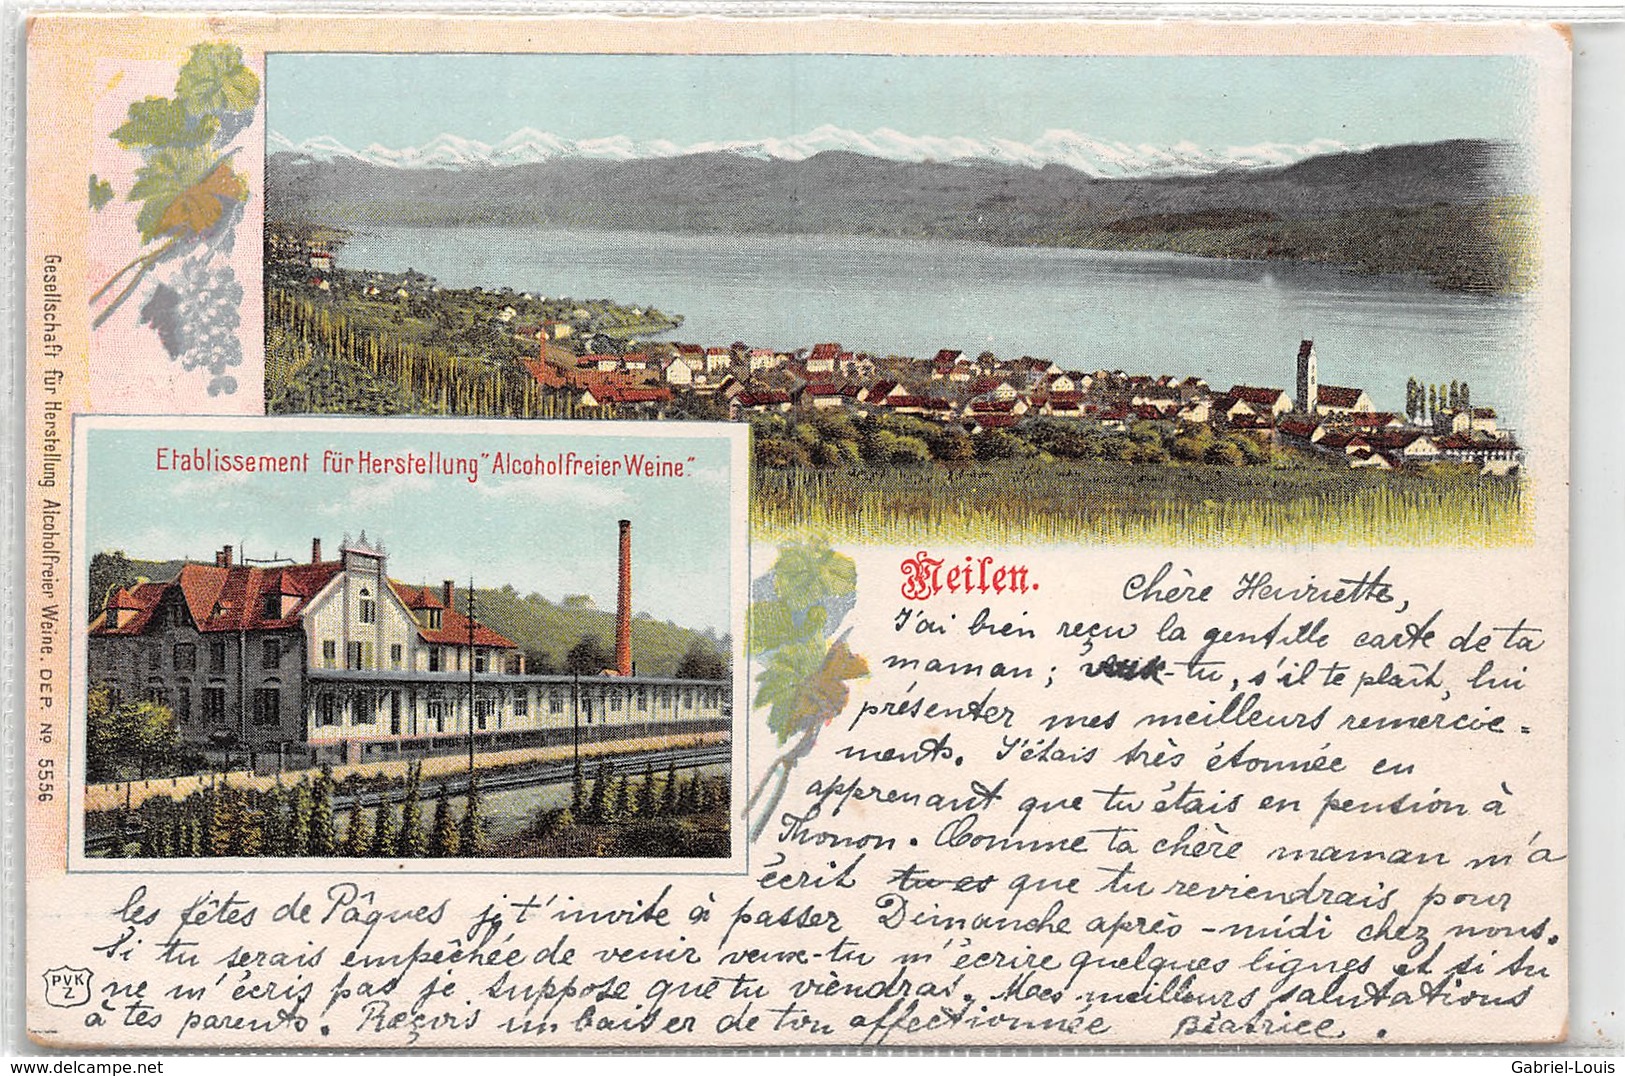 Gesellschaft für Herstellung Alcoholfreier Weine. DEP. No 5556
Etablissement für Herstellung "Alcoholfreier Weine."
Meilen.
Chère Henriette,
J'ai bien reçu la gentille carte de ta
maman; veux-tu, s'il te plaît, lui
présenter mes meilleurs remercie-
ments. J'étais très étonnée en
apprenant que tu étais en pension à
Thonon. Comme ta chère maman m'a
écrit tu es que tu reviendrais pour
les fêtes de Pâques je t'invite à passer Dimanche après-midi chez nous.
Si tu serais empêchée de venir veux-tu m'écrire quelques lignes et si tu
ne m'écris pas je suppose que tu viendras. Mes meilleurs salutations
à tes parents. Reçois un baiser de ton affectionnée Béatrice.
PVK
Z
delcampe.net
Gabriel-Louis